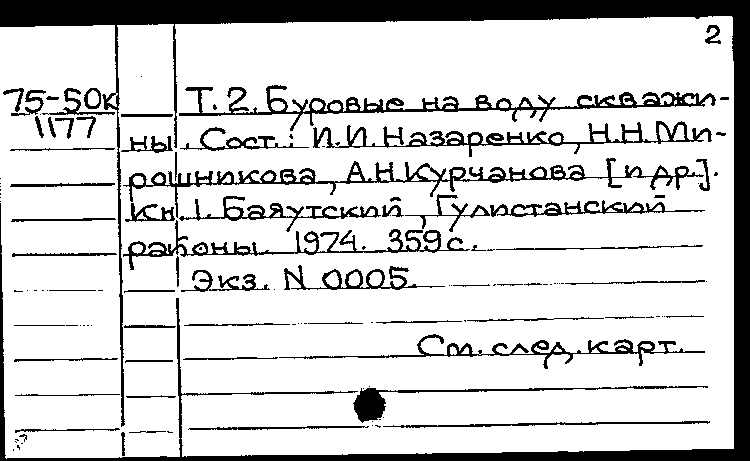 2
75-50к Т. 2. Буровые на воду скважи-
1177
ны. Сост.: И.И. Назаренко, Н.Н. Ми-
рошникова, А.Н. Курчанова [и др.].
Кн. 1. Баяутский, Гулистанский
районы. 1974. 359 с.
Экз. N 0005.
См. след. карт.